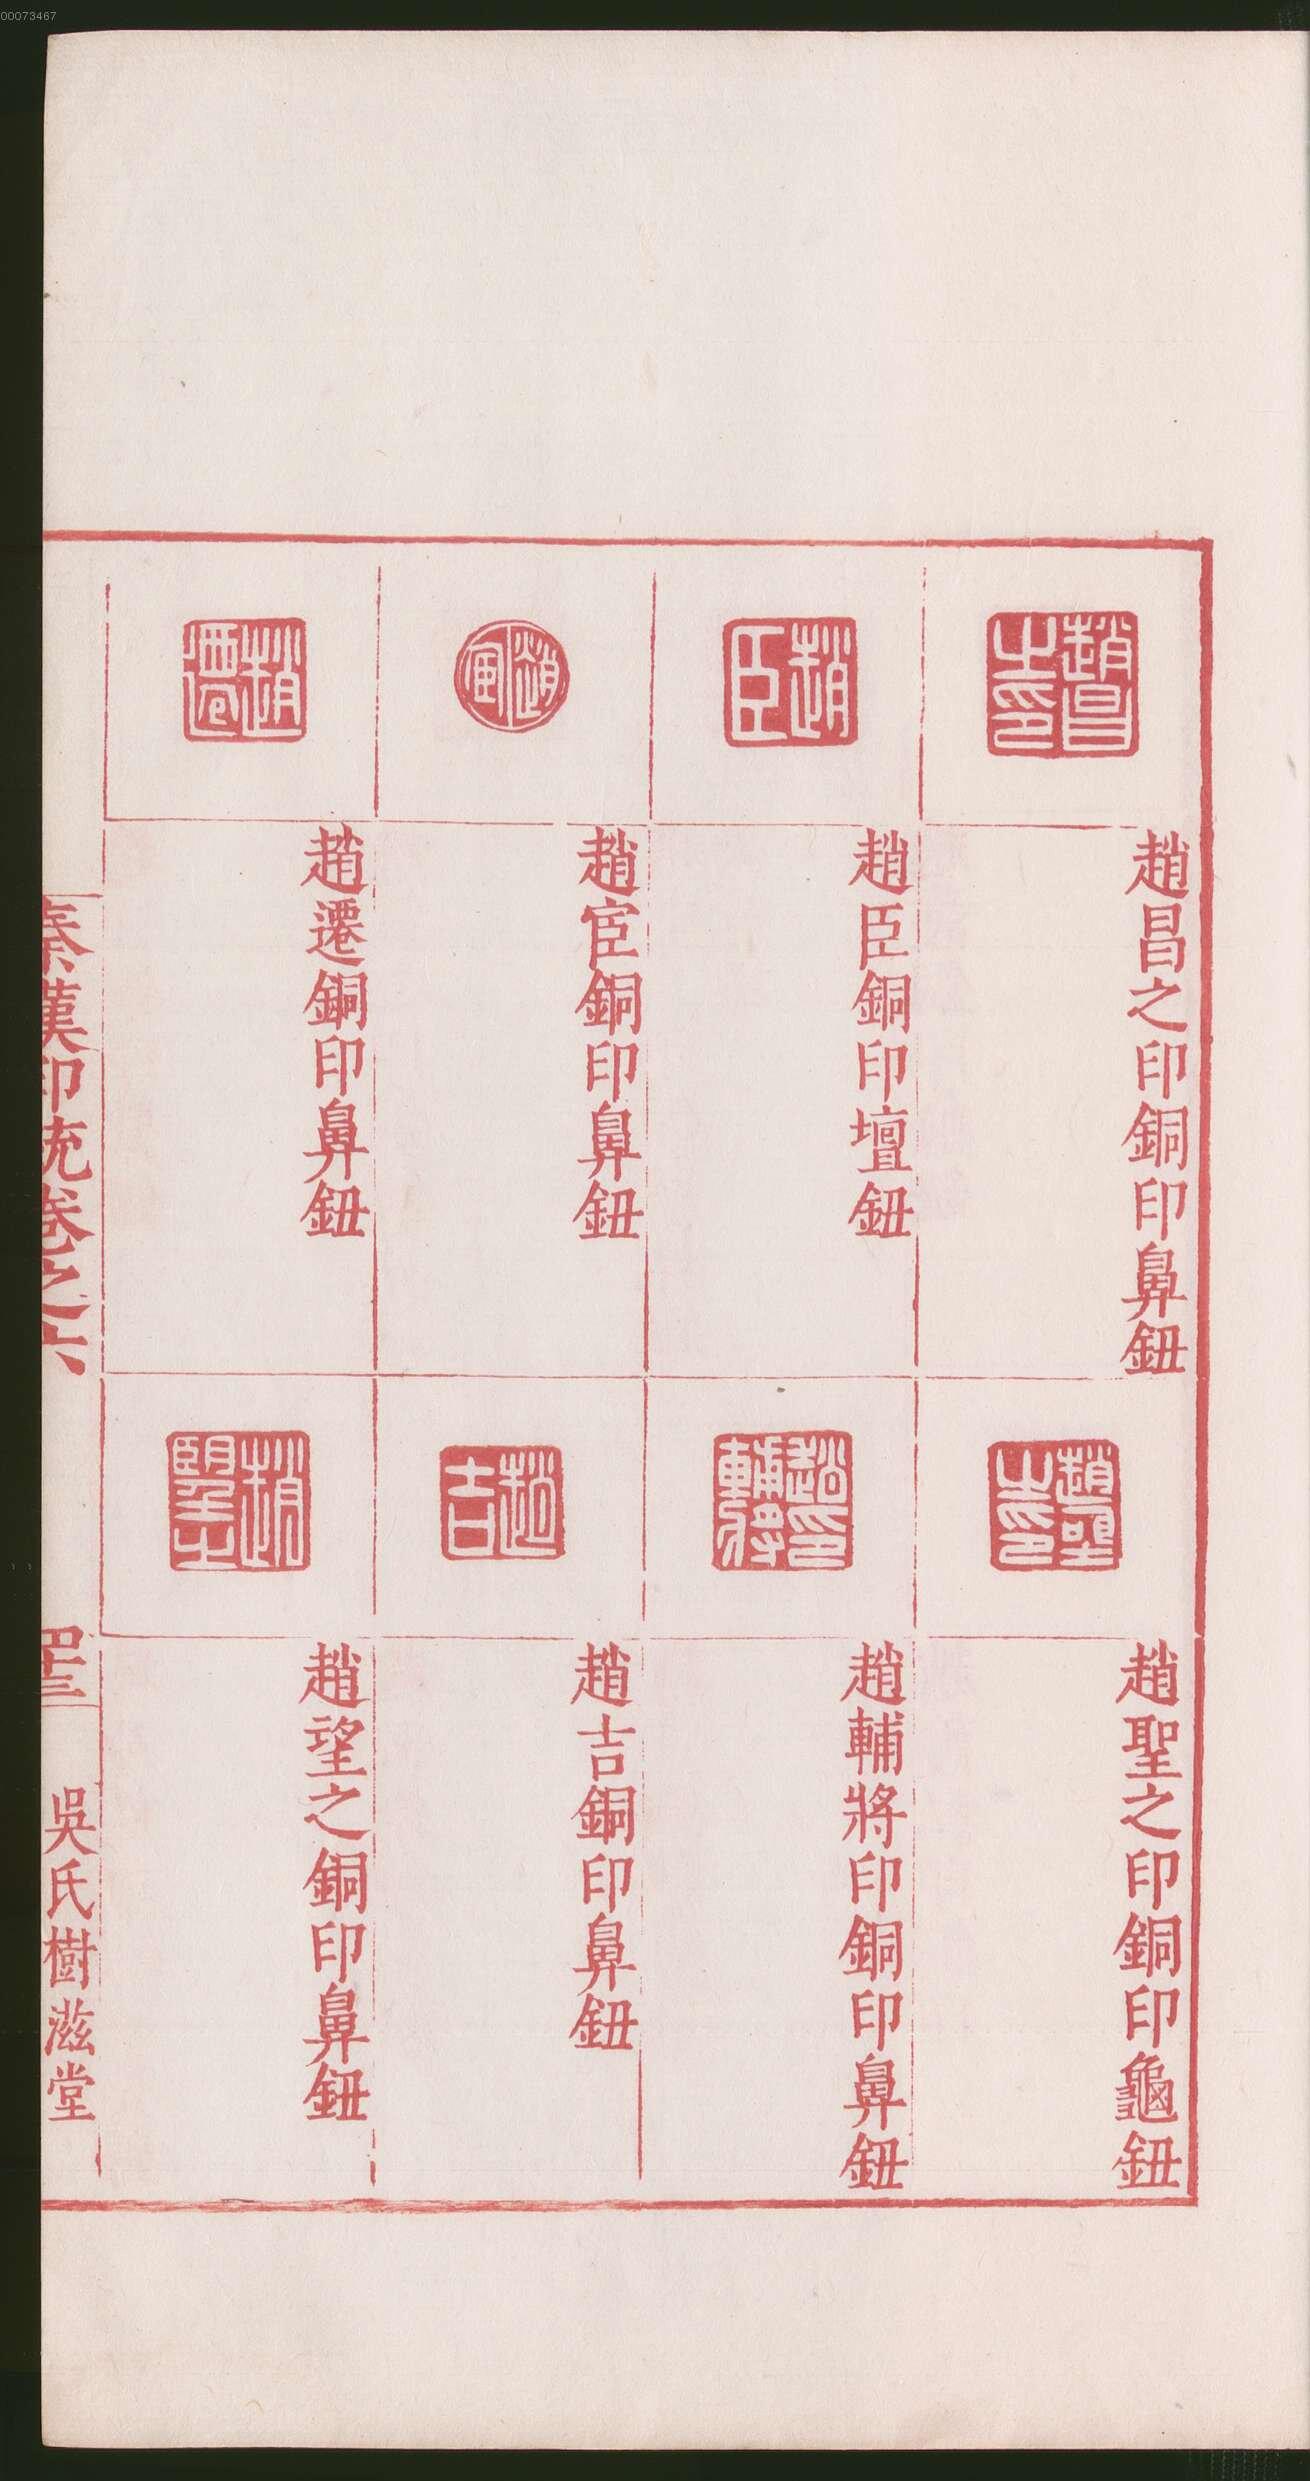 00073467
趙昌之印
趙昌之印銅印鼻鈕
趙臣
趙臣銅印壇鈕
趙宦
趙宦銅印鼻鈕
趙遷
趙遷銅印鼻鈕
趙聖之印
趙聖之印銅印龜鈕
趙輔將印
趙輔將印銅印鼻鈕
趙吉
趙吉銅印鼻鈕
趙望之
趙望之銅印鼻鈕
秦漢印統卷之六
四十三
吳氏樹滋堂